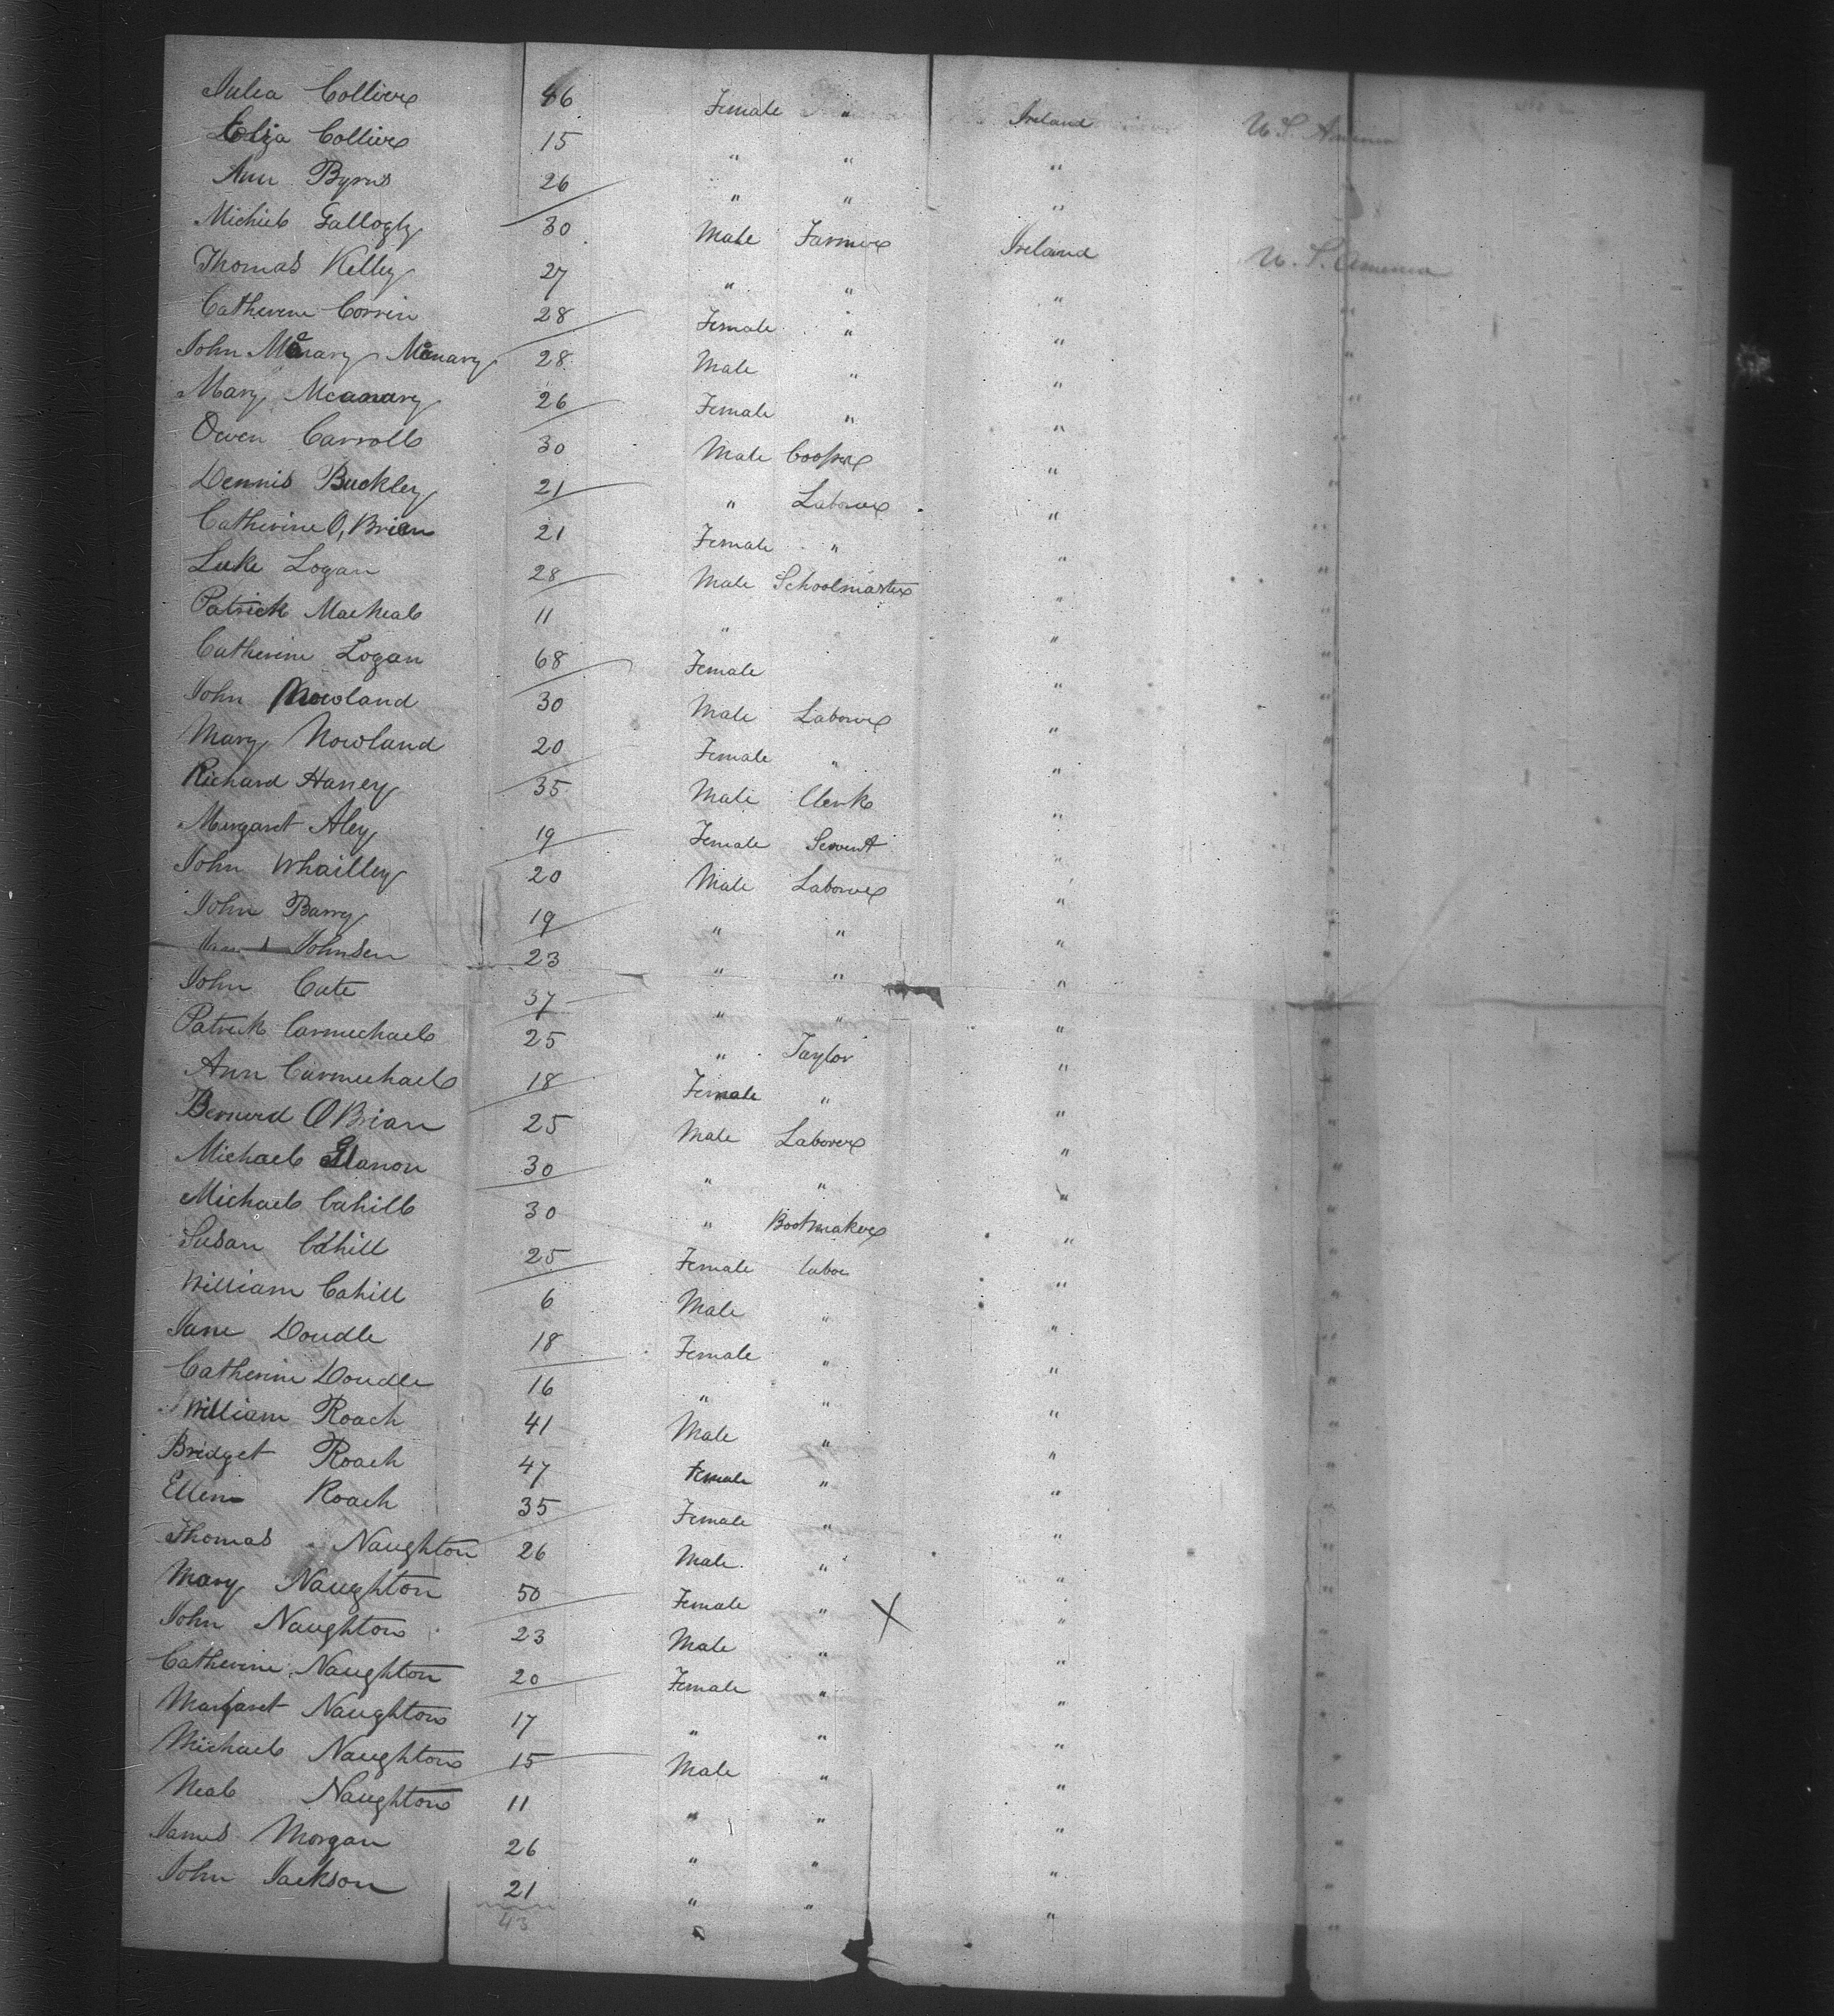 Julia Collier 46 Female " Ireland U S America
Eliza Collier 15 " " "
Ann Byrns 26 " " "
Michiel Gallogly 30 Male Farmer Ireland U. S. America
Thomas Kelley 27 " " " "
Catherine Corrin 28 Female " " "
John McNary McNary 28 Male " " "
Mary Mcanary 26 Female " " "
Owen Carroll 30 Male Cooper " "
Dennis Buckley 21 " Laborer " "
Catherine O, Brien 21 Female " " "
Luke Logan 28 Male Schoolmaster " "
Patrick 11 " " "
Catherine Logan 68 Female " "
John Nowland 30 Male Laborer " "
Mary Nowland 20 Female " " "
Richard Haney 35 Male Clerk " "
Margaret Aley 19 Female Servent " "
John Whailley 20 Male Laborer " "
John Barry 19 " " " "
Johnson 23 " " " "
John Cate 37 " " " "
Patrick Carmichael 25 " Taylor " "
Ann Carmichael 18 Female " " "
Bernerd O Brian 25 Male Laborer " "
Michael 30 " " " "
Michael Cahill 30 " Bootmaker " "
Susan Cahill 25 Female labor " "
William Cahill 6 Male " " "
Jane Doudle 18 Female " " "
Catherine Doudle 16 " " " "
William Roach 41 Male " " "
Bridget Roach 47 Female " " "
Ellen Roach 35 Female " " "
Thomas Naughton 26 Male " " "
Mary Naughton 50 Female " X " "
John Naughton 23 Male " " "
Catherine Naughton 20 Female " " "
Margaret Naughton 17 " " " "
Michael Naughton 15 Male " " "
Neal Naughton 11 " " " "
James Morgan 26 " " " "
John Jackson 21 " " " "
43